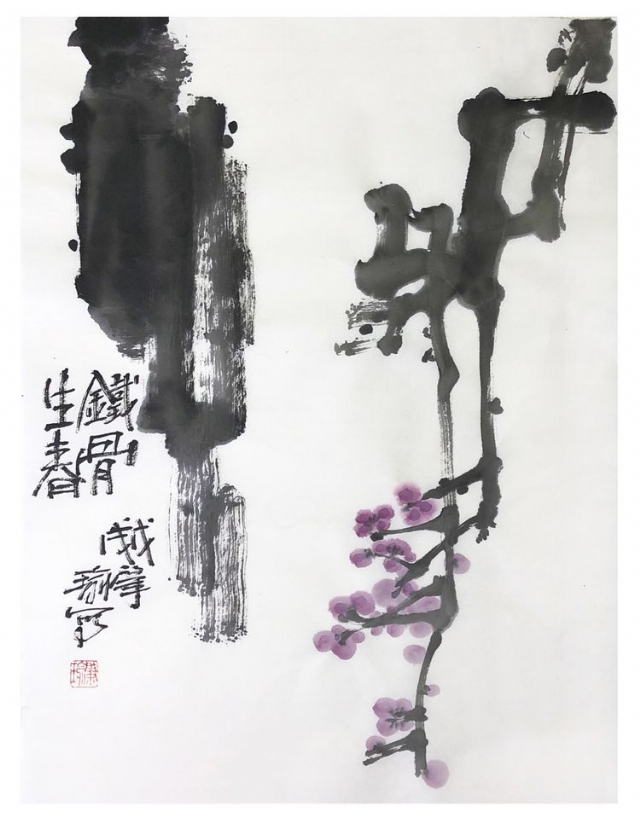 鐵骨
生春
戊戌
寫